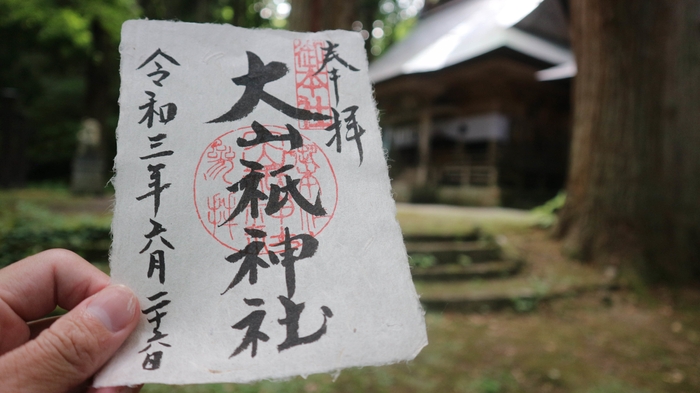 奉拝
大山祇神社
令和三年六月二十六日